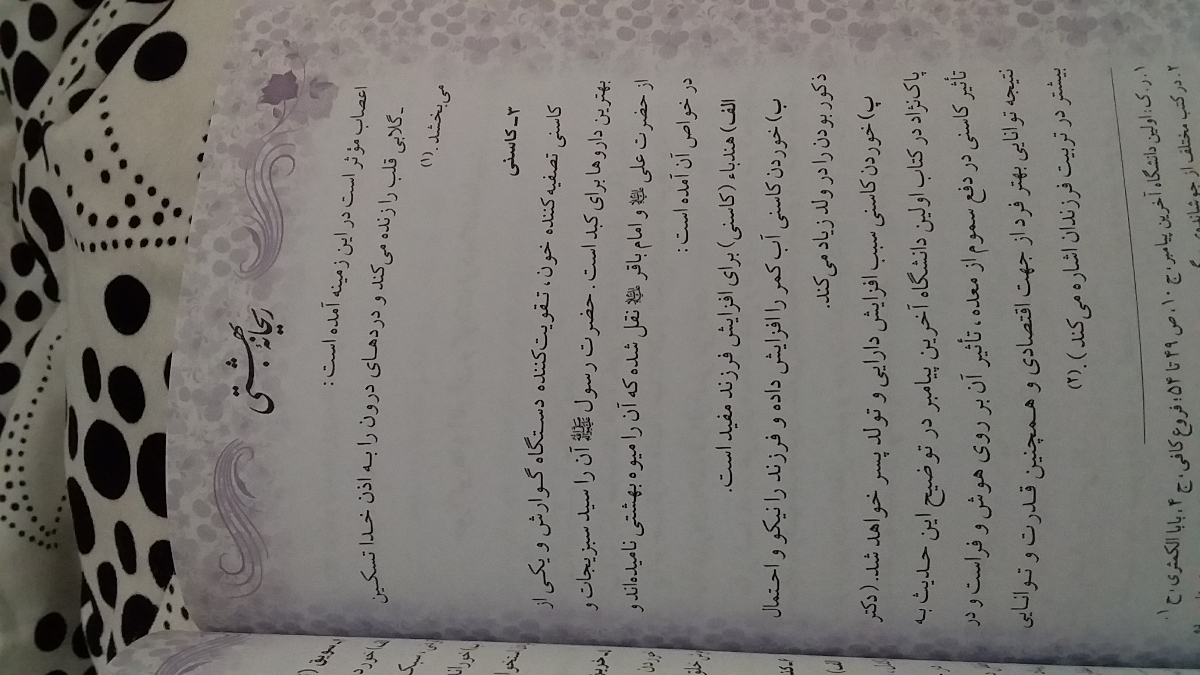 ریحانهٔ بهشتی
اعصاب مؤثر است در این زمینه آمده است:
ـ گلابی قلب را زنده می‌کند و دردهای درون را به اذن خدا تسکین
می‌بخشد. (۱)
۳ـ کاسنی
کاسنی تصفیه‌کننده خون، تقویت‌کننده دستگاه گوارش و یکی از
بهترین داروها برای کبد است. حضرت رسول ﷺ آن را سید سبزیجات و
از حضرت علی و امام باقر نقل شده که آن را میوه بهشتی نامیده‌اند و
در خواص آن آمده است:
الف) هندباء (کاسنی) برای افزایش فرزند مفید است.
ب) خوردن کاسنی آب کمر را افزایش داده و فرزند را نیکو و احتمال
ذکور بودن را در ولد زیاد می‌کند.
پ) خوردن کاسنی سبب افزایش دارایی و تولد پسر خواهد شد. (دکتر
پاک‌نژاد در کتاب اولین دانشگاه آخرین پیامبر در توضیح این حدیث به
تأثیر کاسنی در دفع سموم از معده، تأثیر آن بر روی هوش و فراست و در
نتیجه توانایی بهتر فرد از جهت اقتصادی و همچنین قدرت و توانایی
بیشتر در تربیت فرزندان اشاره می‌کند). (۲)
۱. ر.ک: اولین دانشگاه آخرین پیامبر، ج ۱۰، ص ۴۹ تا ۵۴؛ فروع کافی، ج ۴، باب الکمثری، ح ۱.
۲. در کتب مختلف از جوشانده